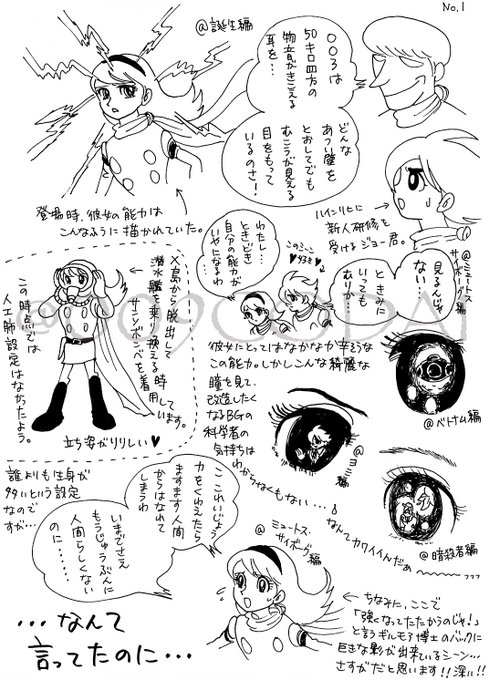 No.1
@誕生編
003は
50キロ四方の
物音がきこえる
耳を…
どんな
あつい壁を
とおしてでも
むこうが見える
目をもって
いるのさ!
登場時、彼女の能力は
こんなふうに描かれていた。
ハインリヒに
新人研修を
受けるジョー君。
@ミュートス・サイボーグ編
わたし…
ときどき
自分の能力が
いやになるわ
このミニミニ
見るんじゃ
ない…
ときみに
いっても
むりか…
彼女にとってはなかなか辛そうな
この能力。しかしこんな綺麗な
瞳を見て、
改造したく
なるBGの
科学者の
気持ちは
わからなくもない…♪
なんてカワイイんだぁ〜
@ベトナム編
@暗殺者編
X島から脱出して
潜水艦を乗り換える時
サンソボンベを着用
しています。
この時点では
人工肺設定はなかったよう。
立ち姿がりりしい♥
誰よりも生身が
多いという設定
なのですが…
ここれいじょう
力をくわえたら
ますます人間
からはなれて
しまうわ
いまでさえ
もうじゅうぶんに
人間らしくない
のに……
@ミュートス・サイボーグ編
…なんて
言ってたのに…
ちなみに、ここで
「強くなってたたかうのじゃ!」
と言うギルモア博士のバックに
巨きな影が出来ているシーン…
さすがだと思います!!深い!!